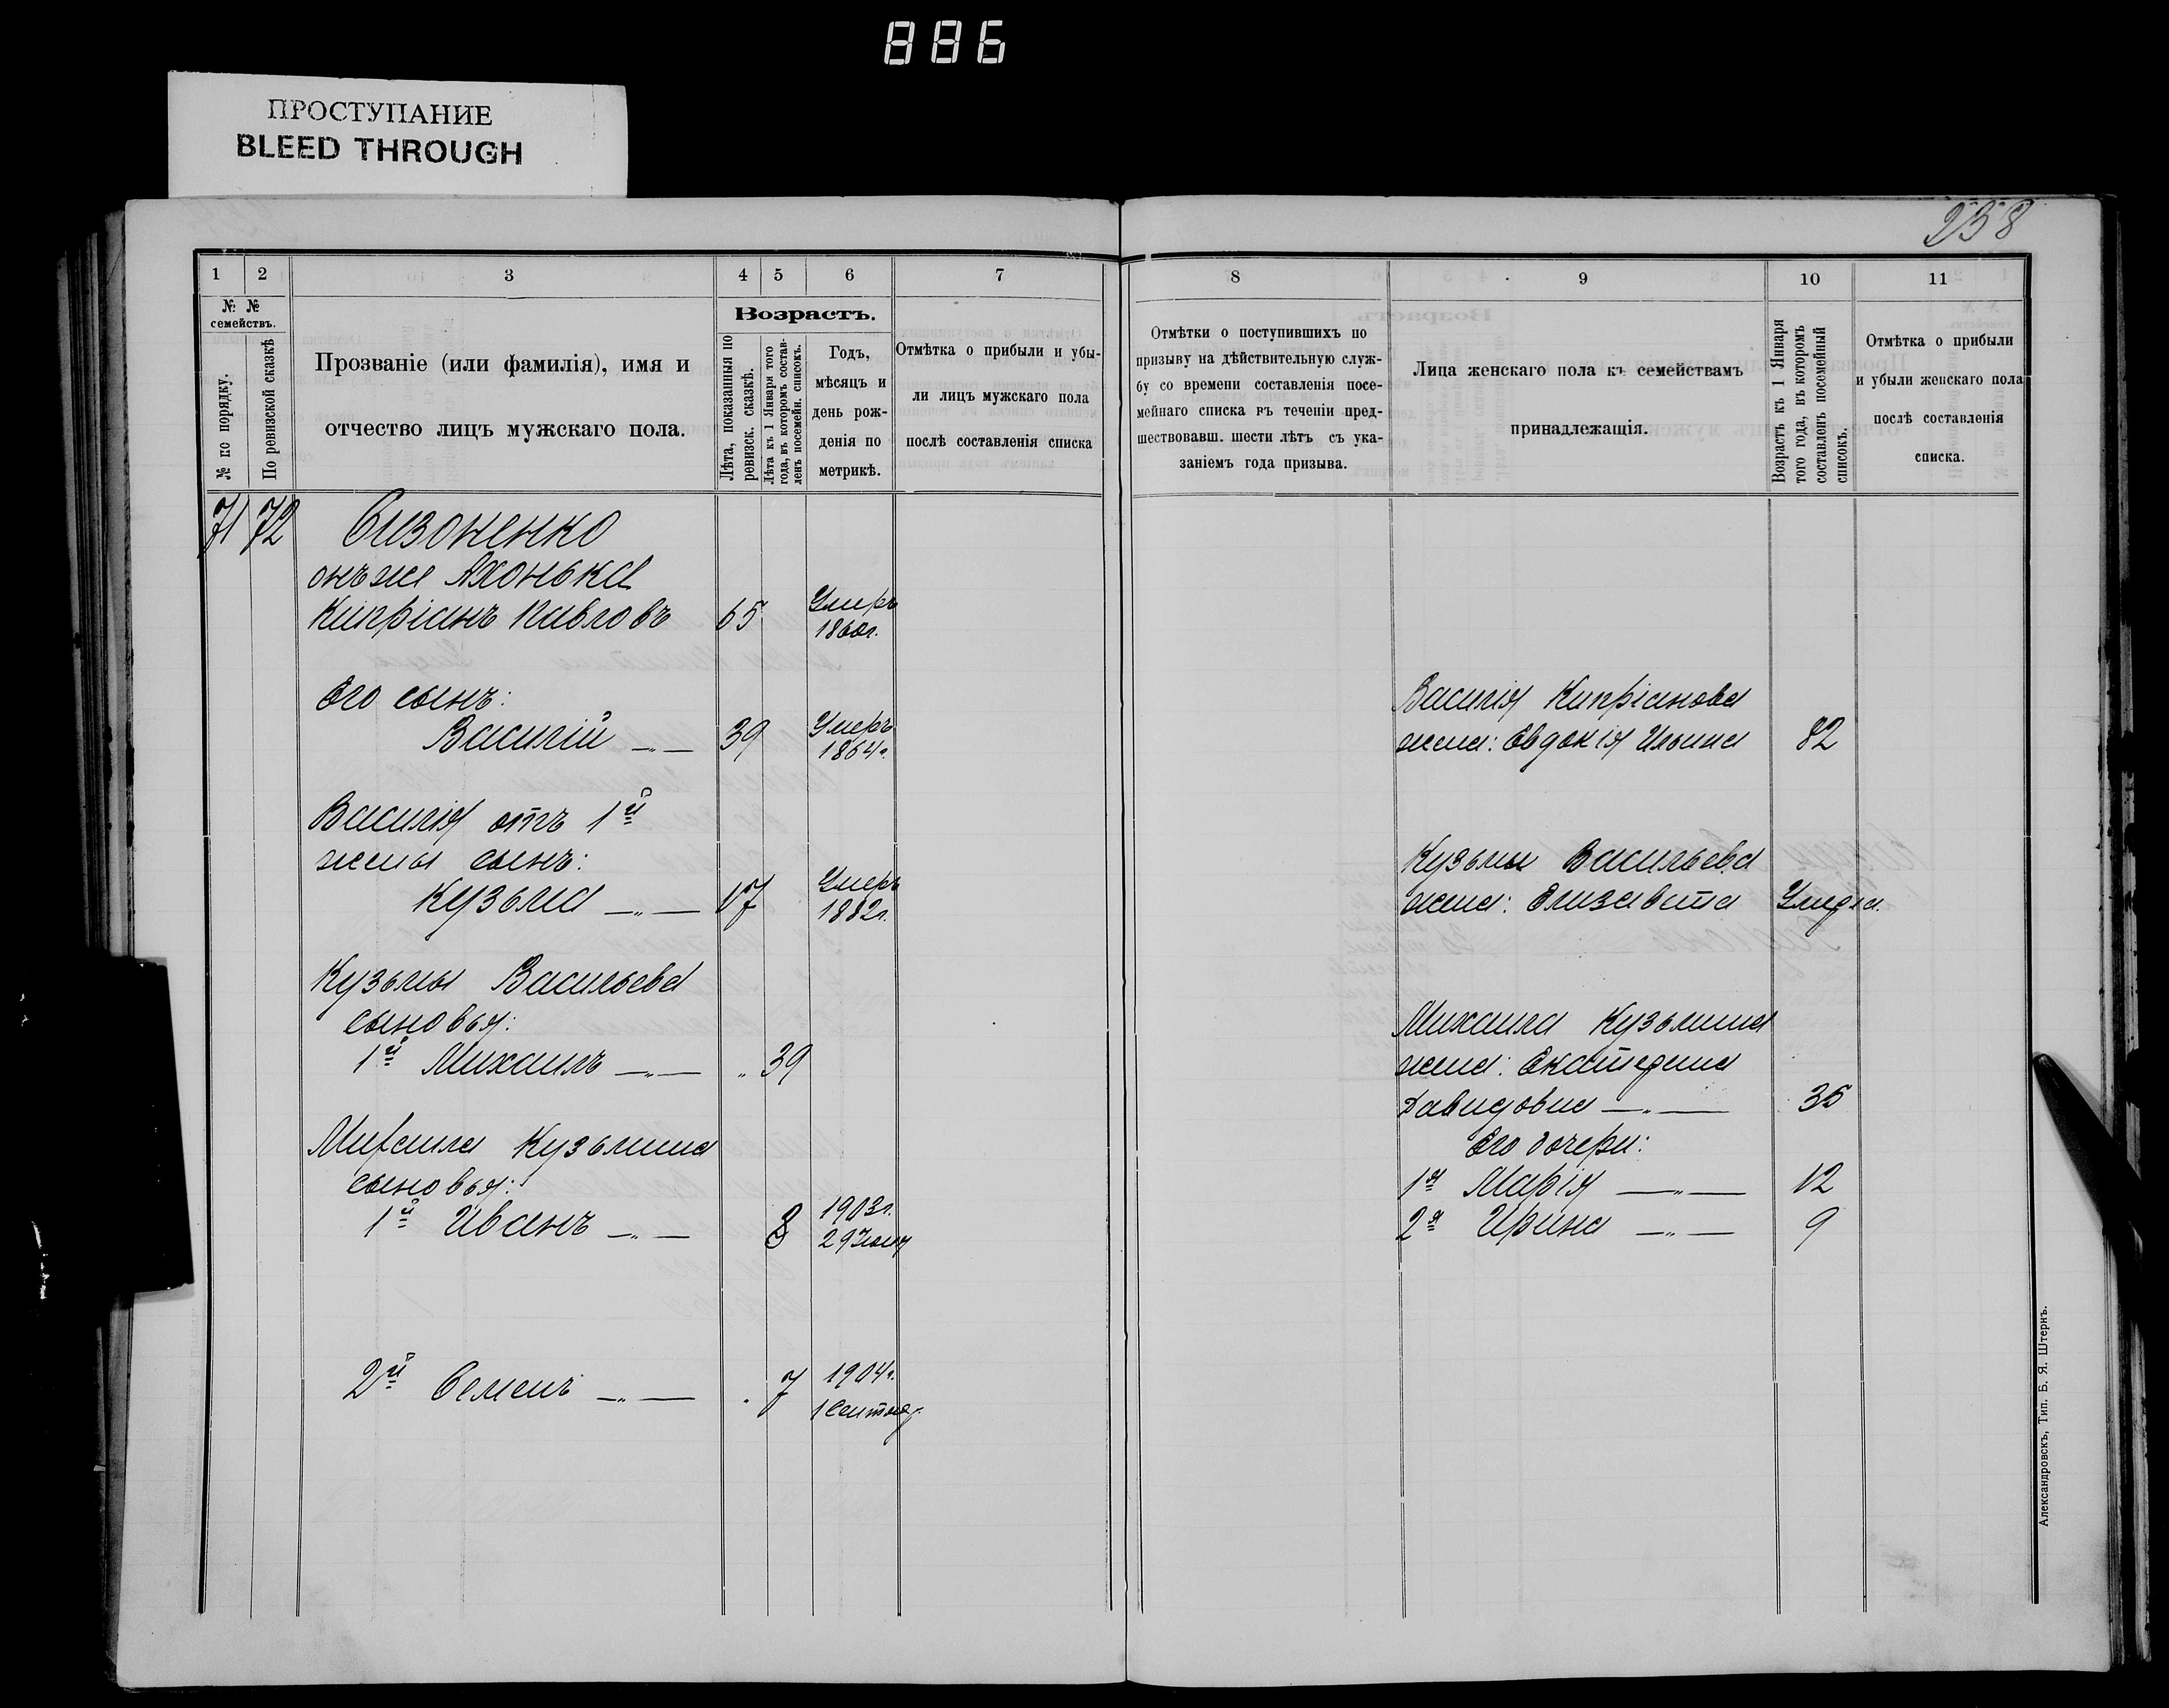 886
ПРОСТУПАНИЕ
BLEED THROUGH
238
1 2 3 4 5 6 7
№ № семействъ.
№ по порядку.
По ревизской сказкѣ
Прозваніе (или фамилія), имя и
отчество лицъ мужскаго пола.
Возрастъ.
Лѣта, показанныя по
ревизск. сказкѣ.
Лѣта къ 1 Января того
года, въ которомъ состав-
ленъ посемейн. списокъ.
Годъ,
мѣсяцъ и
день рож-
денія по
метрикѣ.
Отмѣтка о прибыли и убы-
ли лицъ мужскаго пола
послѣ составленія списка
71 72 Сизоненко
онъ же Яхонька
Кипріанъ Павловъ 65 Умеръ
1860г.
Его сынъ:
Василій —„— 39 Умеръ
1864г.
Василія отъ 1й
жены сынъ:
Кузьма —„— 17 Умеръ
1882г.
Кузьмы Васильева
сыновья:
1й Михаилъ —„— „ 39
Михаила Кузьмина
сыновья:
1й Иванъ —„— 8 1903г.
29 Іюня
2й Семенъ —„— „ 7 1904г.
1 Сентяб.
8 9 10 11
Отмѣтки о поступившихъ по
призыву на дѣйствительную служ-
бу со времени составленія посе-
мейнаго списка въ теченіи пред-
шествовавш. шести лѣтъ съ ука-
заніемъ года призыва.
Лица женскаго пола къ семействамъ
принадлежащія.
Возрастъ къ 1 Января
того года, въ которомъ
составленъ посемейный
списокъ.
Отмѣтка о прибыли
и убыли женскаго пола
послѣ составленія
списка.
Василія Кипріанова
жена: Евдокія Ильина 82
Кузьмы Васильева
жена: Елизавета Умерла.
Михаила Кузьмина
жена: Екатерина
Давидовна —„— 35
Его дочери:
1я Марія —„— 12
2я Ирина —„— 9
Александровскъ, Тип. Б. Я. Штернъ.